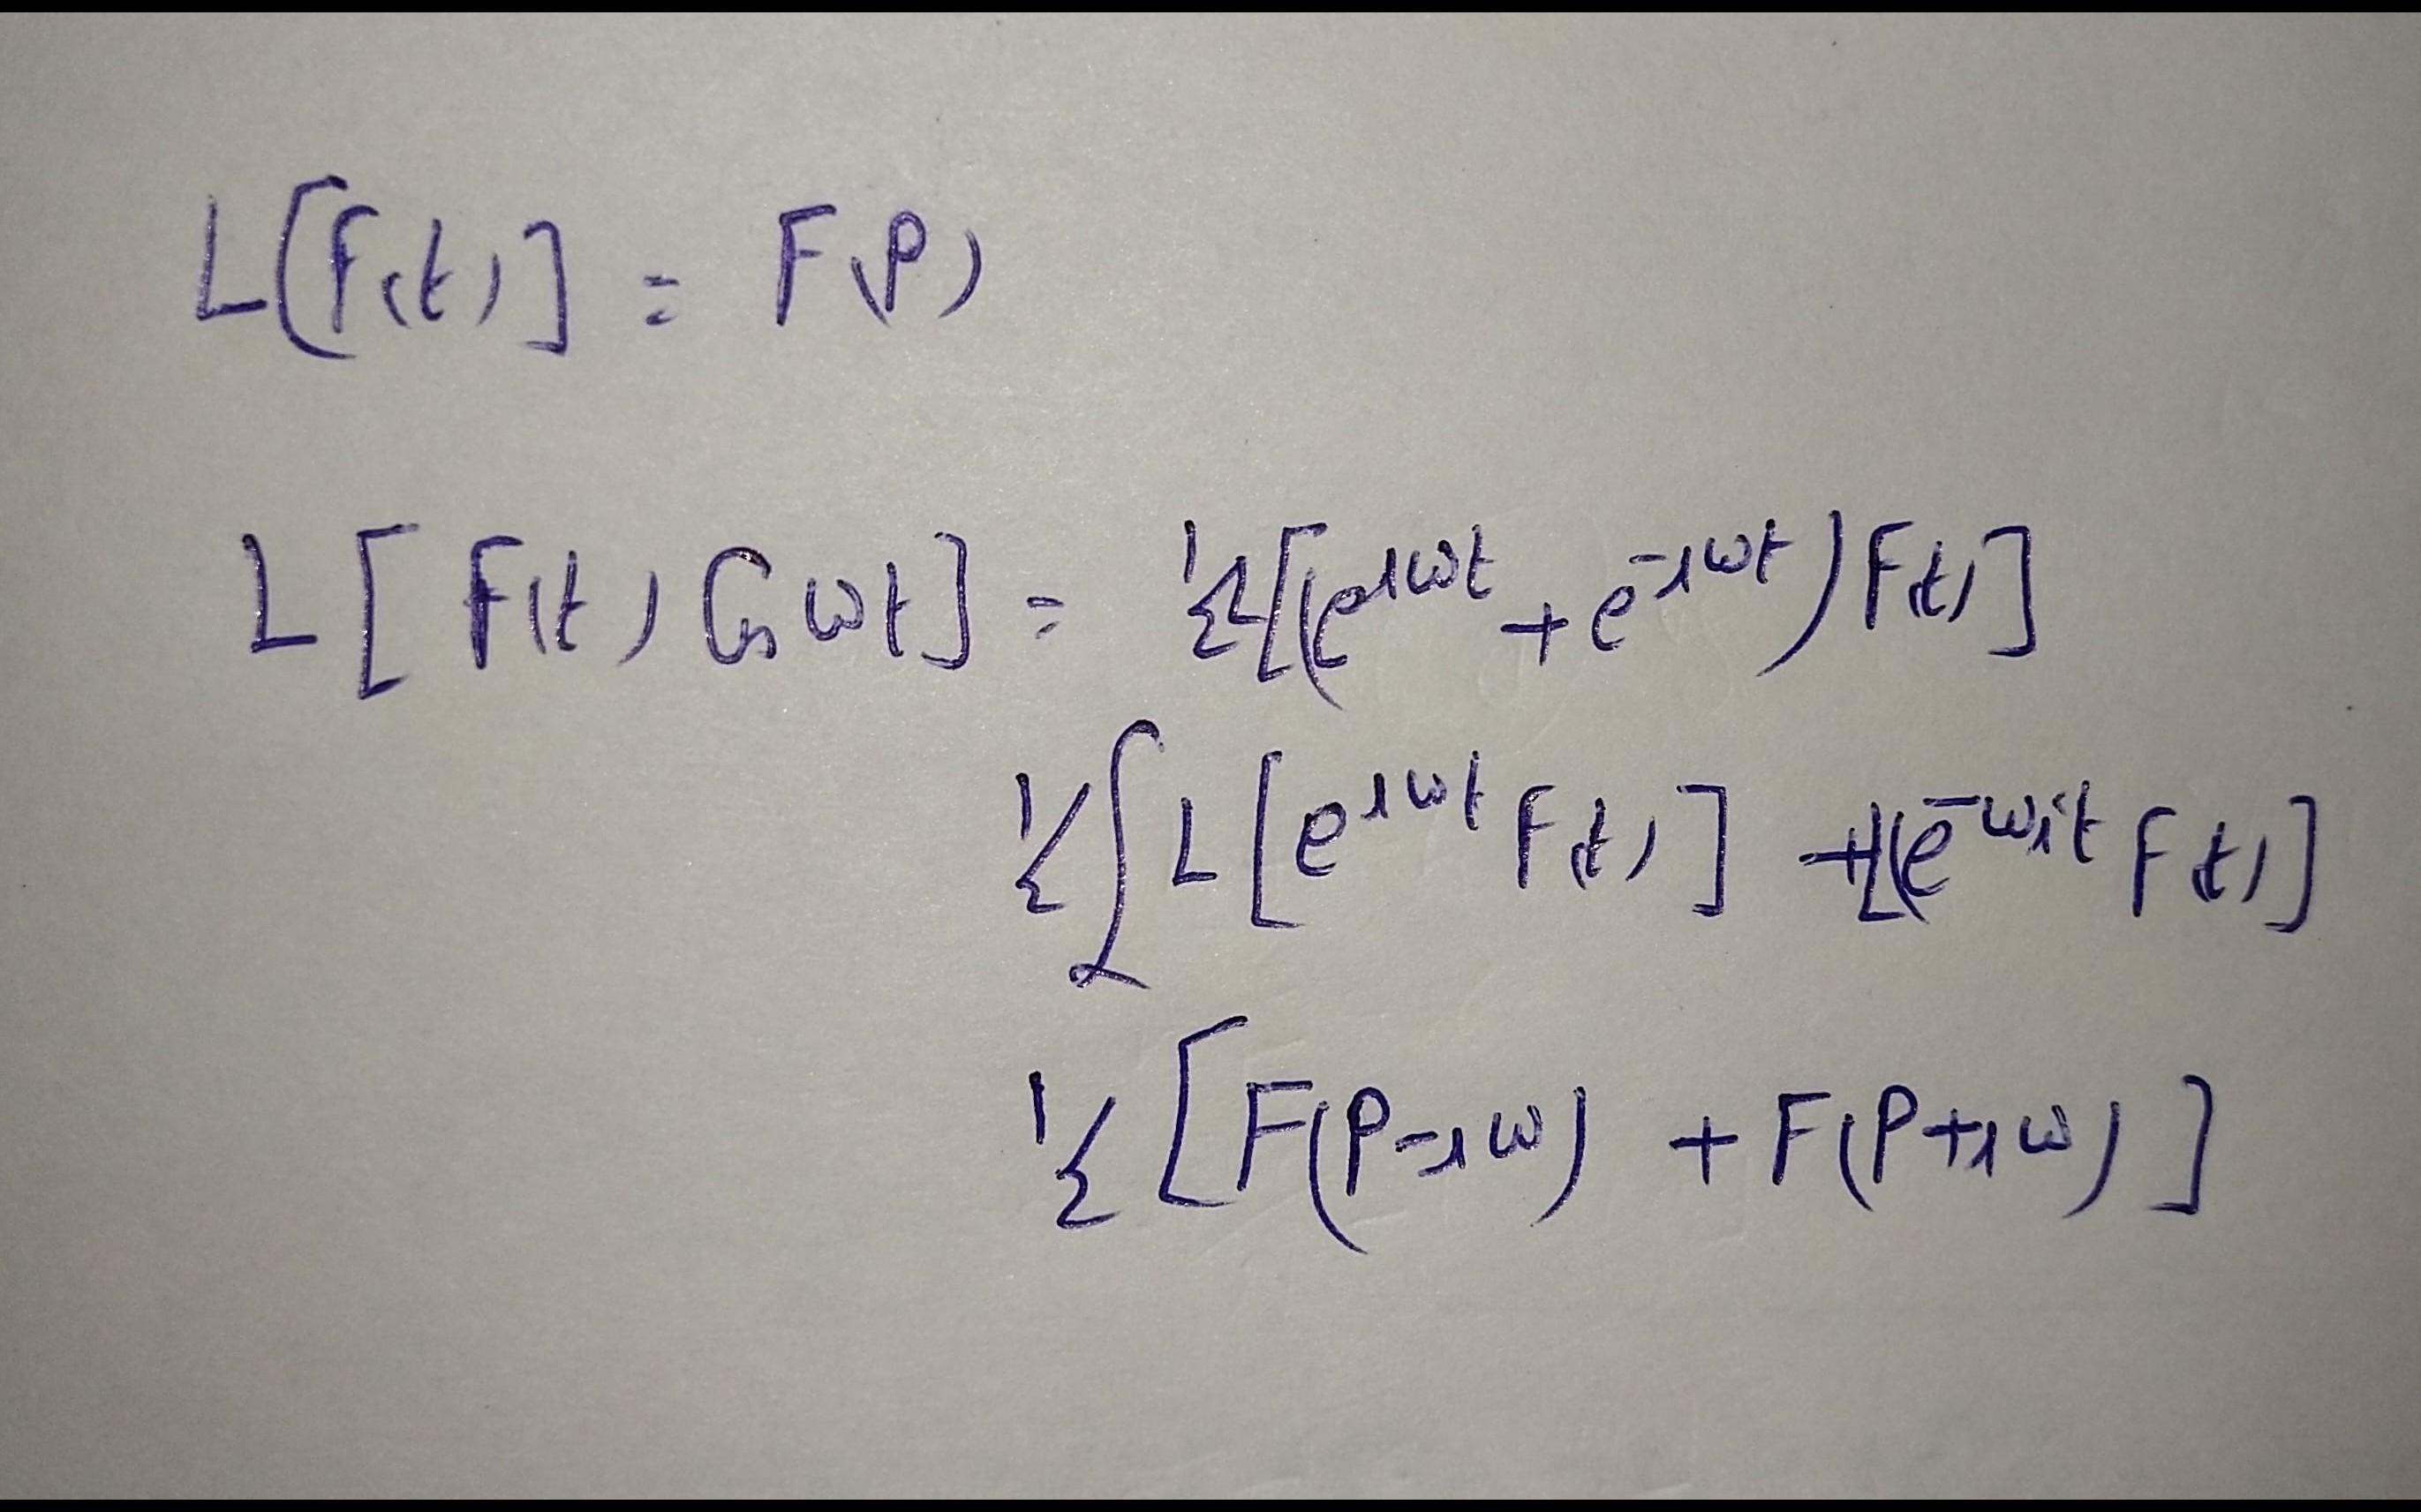 L[F(t)] = F(P)
L[F(t) Cos ωt] = 1/2 L[(e^{iωt} + e^{-iωt}) F(t)]
1/2 [L[e^{iωt} F(t)] + L[e^{-ωit} F(t)]
1/2 [F(P-iω) + F(P+iω)]